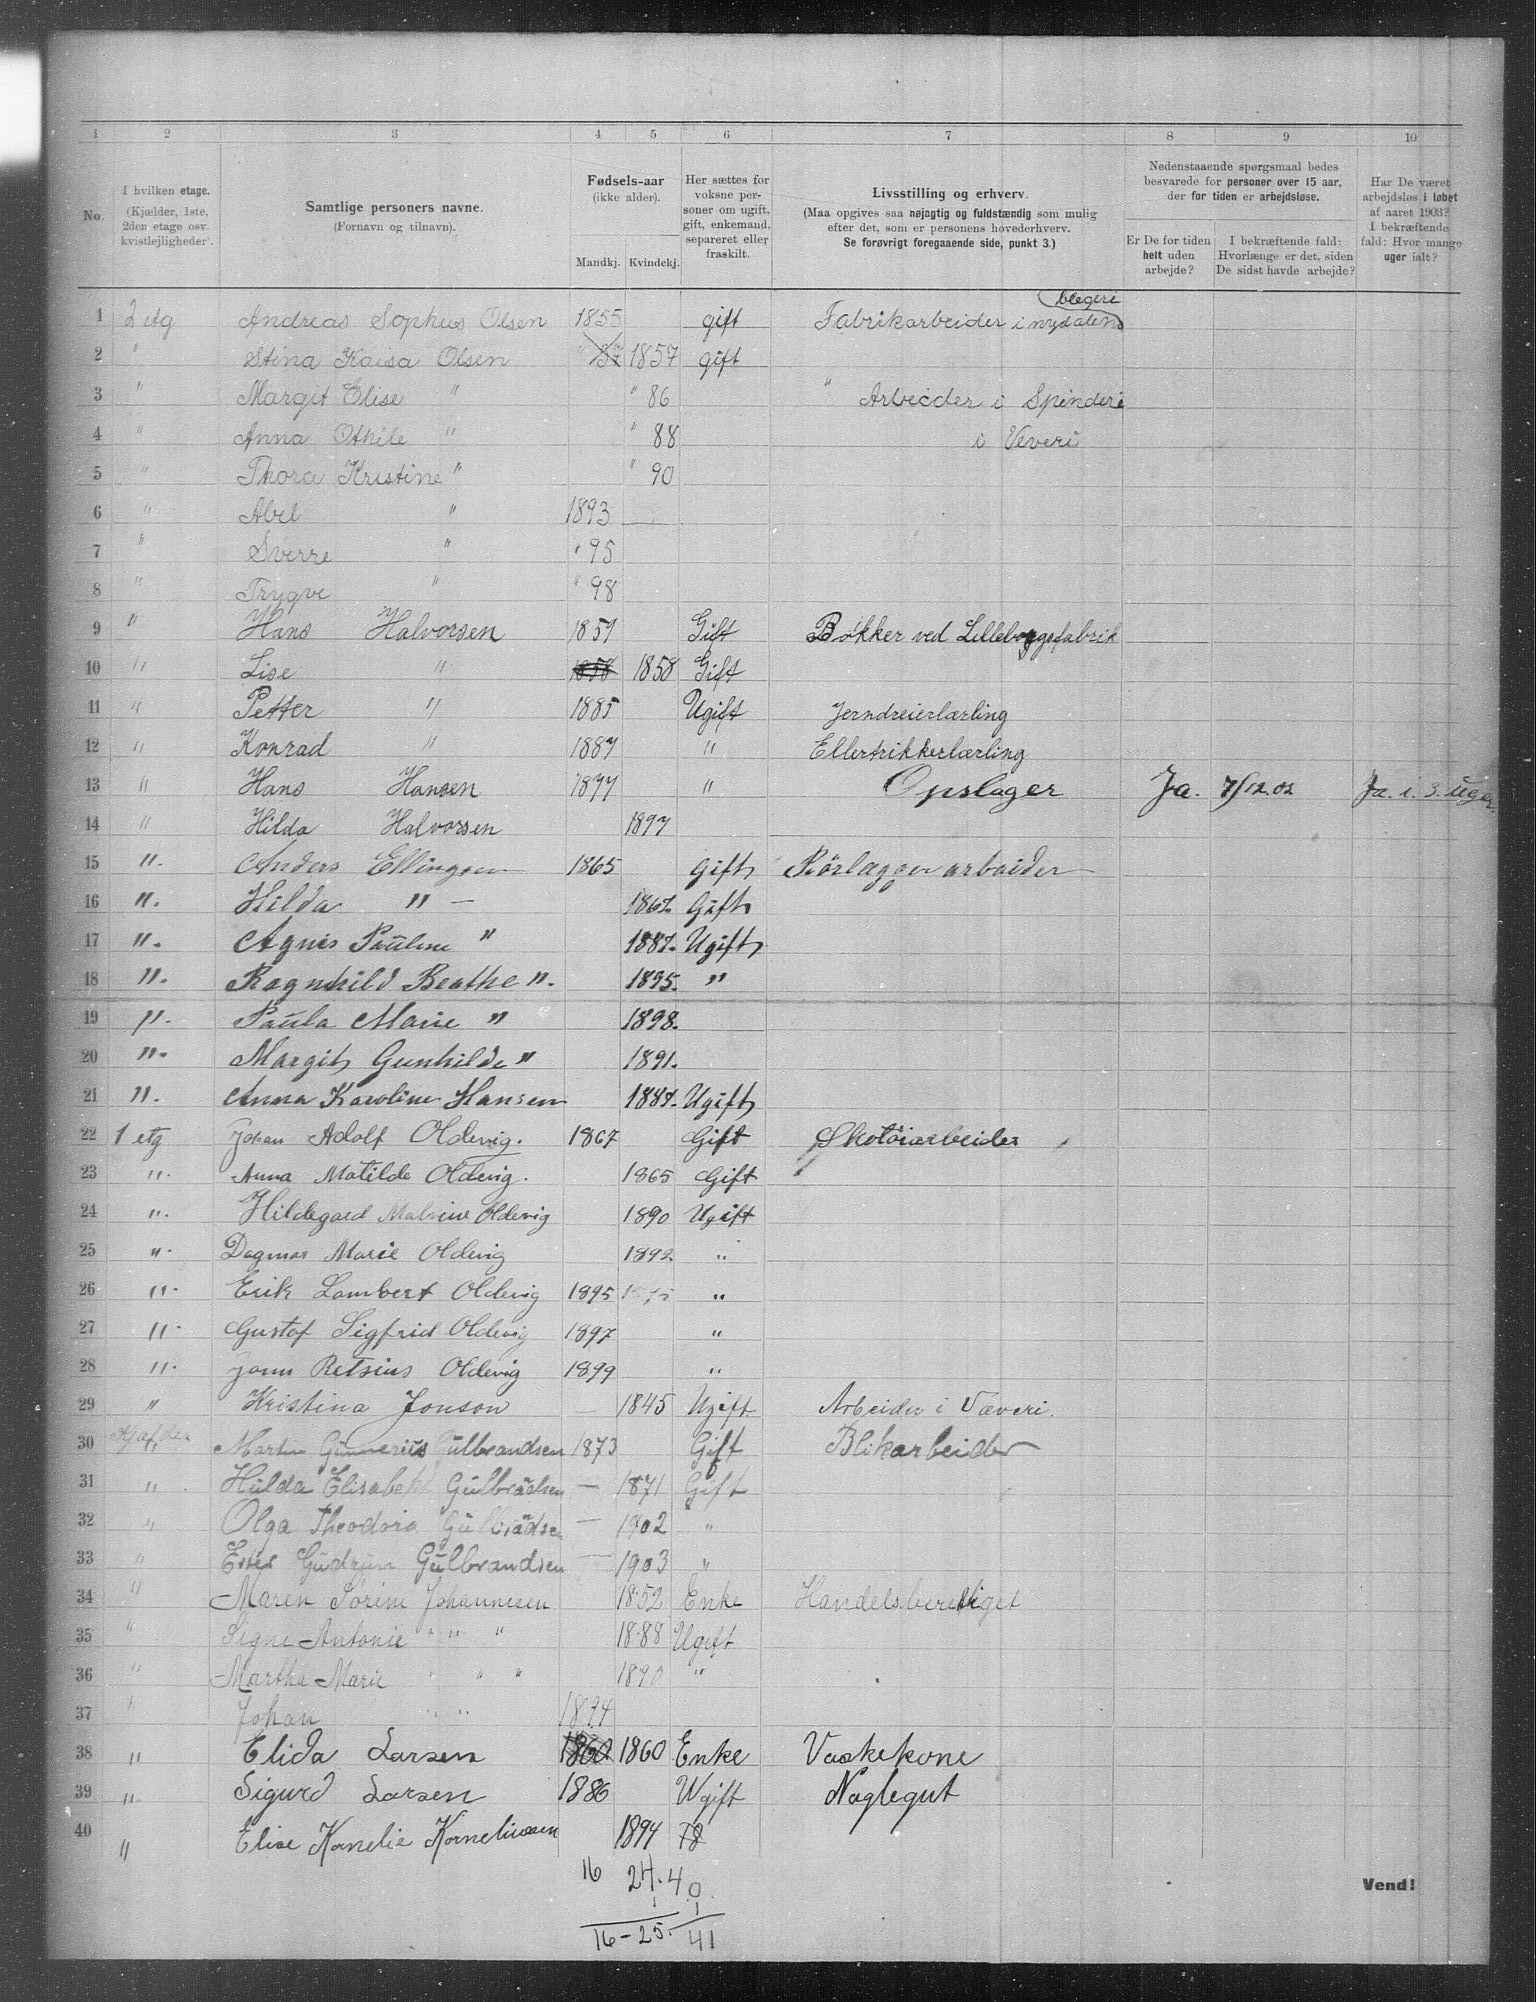 1 2 3 4 5 6 7 8 9 10
No.
I hvilken etage.
(Kjælder, 1ste, 2den etage osv. kvistlejligheder).
Samtlige personers navne.
(Fornavn og tilnavn).
Fødsels-aar
(ikke alder).
Mandkj. Kvindekj.
Her sættes for voksne personer om ugift, gift, enkemand, separeret eller fraskilt.
Livsstilling og erhverv.
(Maa opgives saa nøjagtig og fuldstændig som mulig efter det, som er personens hovederhverv.
Se forøvrigt foregaaende side, punkt 3.)
Nedenstaaende spørgsmaal bedes besvarede for personer over 15 aar, der for tiden er arbejdsløse.
Er De for tiden helt uden arbejde?
I bekræftende fald: Hvorlænge er det, siden De sidst havde arbejde?
Har De været arbejdsløs i løbet af aaret 1903? I bekræftende fald: Hvor mange uger ialt?
blegeri
1 2 etg Andreas Sophus Olsen 1855 gift Fabrikarbeider i nydalens
2 " Stina Kaisa Olsen 1857 gift
3 " Margit Elise " " 86 " Arbeider i Spinderi
4 " Anna Othile " " 88 i Veveri
5 " Thora Kristine " " 90
6 " Abel " 1893
7 " Sverre " " 95
8 " Trygve " " 98
9 " Hans Halvorsen 1857 Gift Bøkker ved Lilleborgsfabrik
10 " Lise " 1858 1858 Gift
11 " Petter " 1885 Ugift Jerndreierlærling
12 " Konrad " 1887 " Ellertrikkerlærling
13 " Hans Hansen 1877 " Opslager Ja. 7/12.02 Ja. i. 3. uger
14 " Hilda Halvorsen 1897
15 " Anders Ellingsen 1865 Gift Rörlægger arbeider
16 " Hilda " 1867. Gift
17 " Agnis Pauline " 1887. Ugift
18 " Ragnhild Beathe " 1895. "
19 " Paula Marie " 1898.
20 " Margit Gunhilde " 1891.
21 " Anna Karoline Hansen 1887. Ugift
22 1 etg Johan Adolf Oldevig. 1867 Gift Skotöiarbeider
23 " Anna Matilde Oldevig. 1865 Gift
24 " Hildegard Malvine Oldevig 1890 Ugift
25 " Dagmar Marie Oldevig 1892. "
26 " Erik Lambert Oldevig 1895 "
27 " Gustaf Sigfrid Oldevig 1897 "
28 " Retsius Oldevig 1899 "
29 " Kristina Jonson 1845 Ugift Arbeider i Væveri.
30 Kjælder Martin Gunnerius Gulbrandsen 1873 Gift Blikarbeider
31 " Hulda Elisabeht Gülbrådsen — 1871 Gift
32 " Olga Theodora Gülbrådsen — 1902 "
33 " Gudrun Gülbrandsen — 1903 "
34 " Maren Sorine Johannesen 1852 Enke Handelsberettiget
35 " Signe Antonie " " " 1888 Ugift
36 " Martha Marie " " " 1890 "
37 " Johan " " 1894
38 " Elida Larsen 1860 1860 Enke Vaskekone
39 " Sigurd Larsen 1886 Ugift Naglegut
40 " Elise Kornelie Korneliussen 1894
16 24. 40.
1 1
16 - 25. 41
Vend!